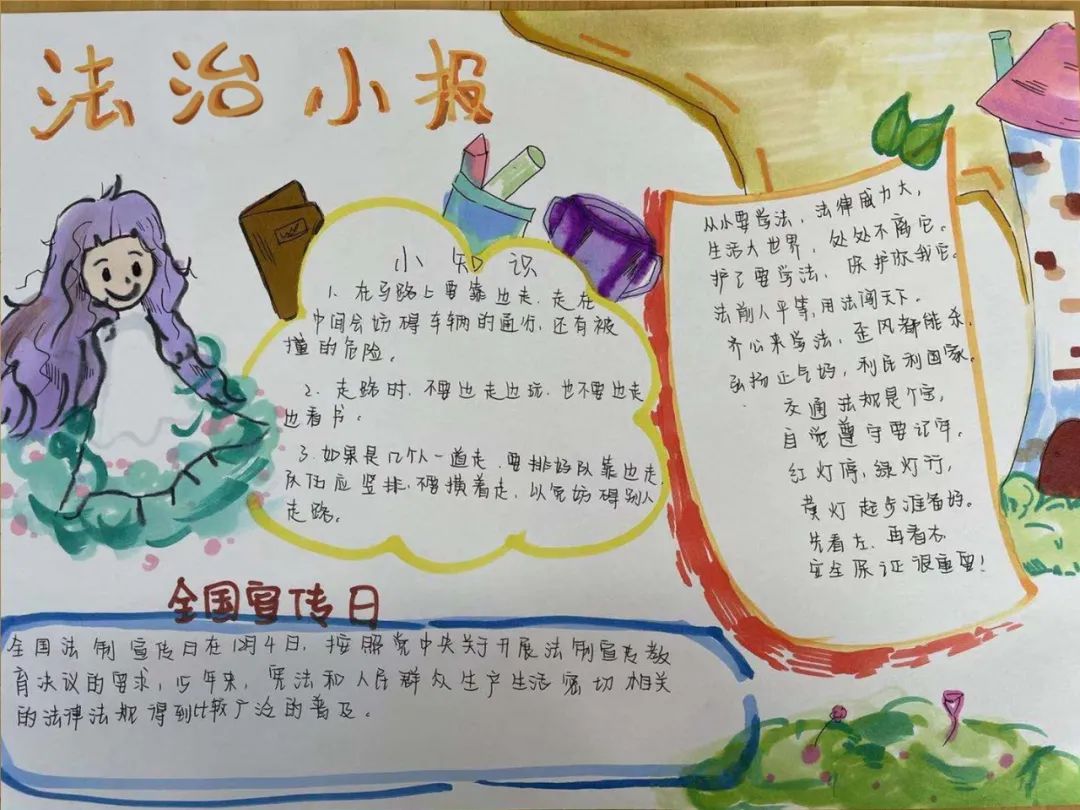 法治小报
小知识
1. 在马路上要靠边走.走在
中间会妨碍车辆的通行,还有被
撞的危险。
2. 走路时,不要边走边玩.也不要边走
边看书。
3.如果是几个人一道走.要排好队靠边走.
队伍应竖排,不要横着走,以免妨碍别人
走路。
从小要学法,法律威力大,
生活大世界,处处不离它。
护己要学法,保护你我它。
法前人平等,用法闯天下。
齐心来学法,歪风都能杀,
弘扬正气好,利民利国家。
交通法规是个宝,
自觉遵守要记牢。
红灯停,绿灯行,
黄灯起步准备好。
先看左、再看右
安全保证很重要!
全国宣传日
全国法制宣传日在12月4日,按照党中央关于开展法制宣传教
育决议的要求,15年来,宪法和人民群众生产生活密切相关
的法律法规得到比较广泛的普及。